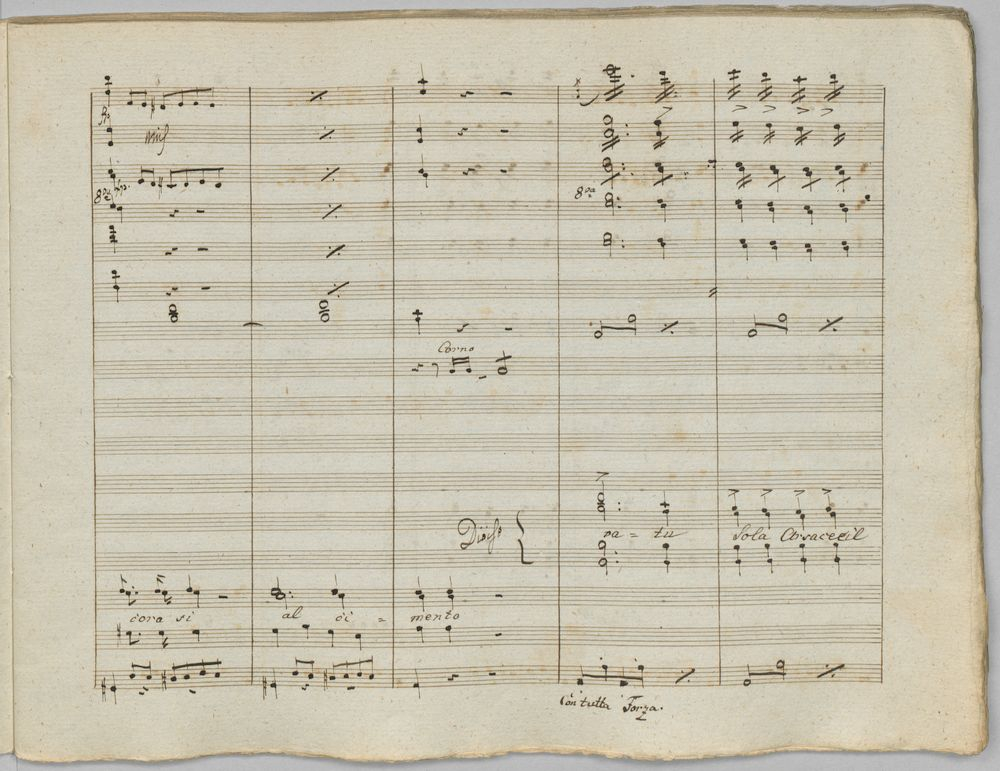 fp
unis
8va fp.
8va
Corno
Divisi
pa = tu sola Corac e il
cora si al ci = mento
Con tutta Forza.